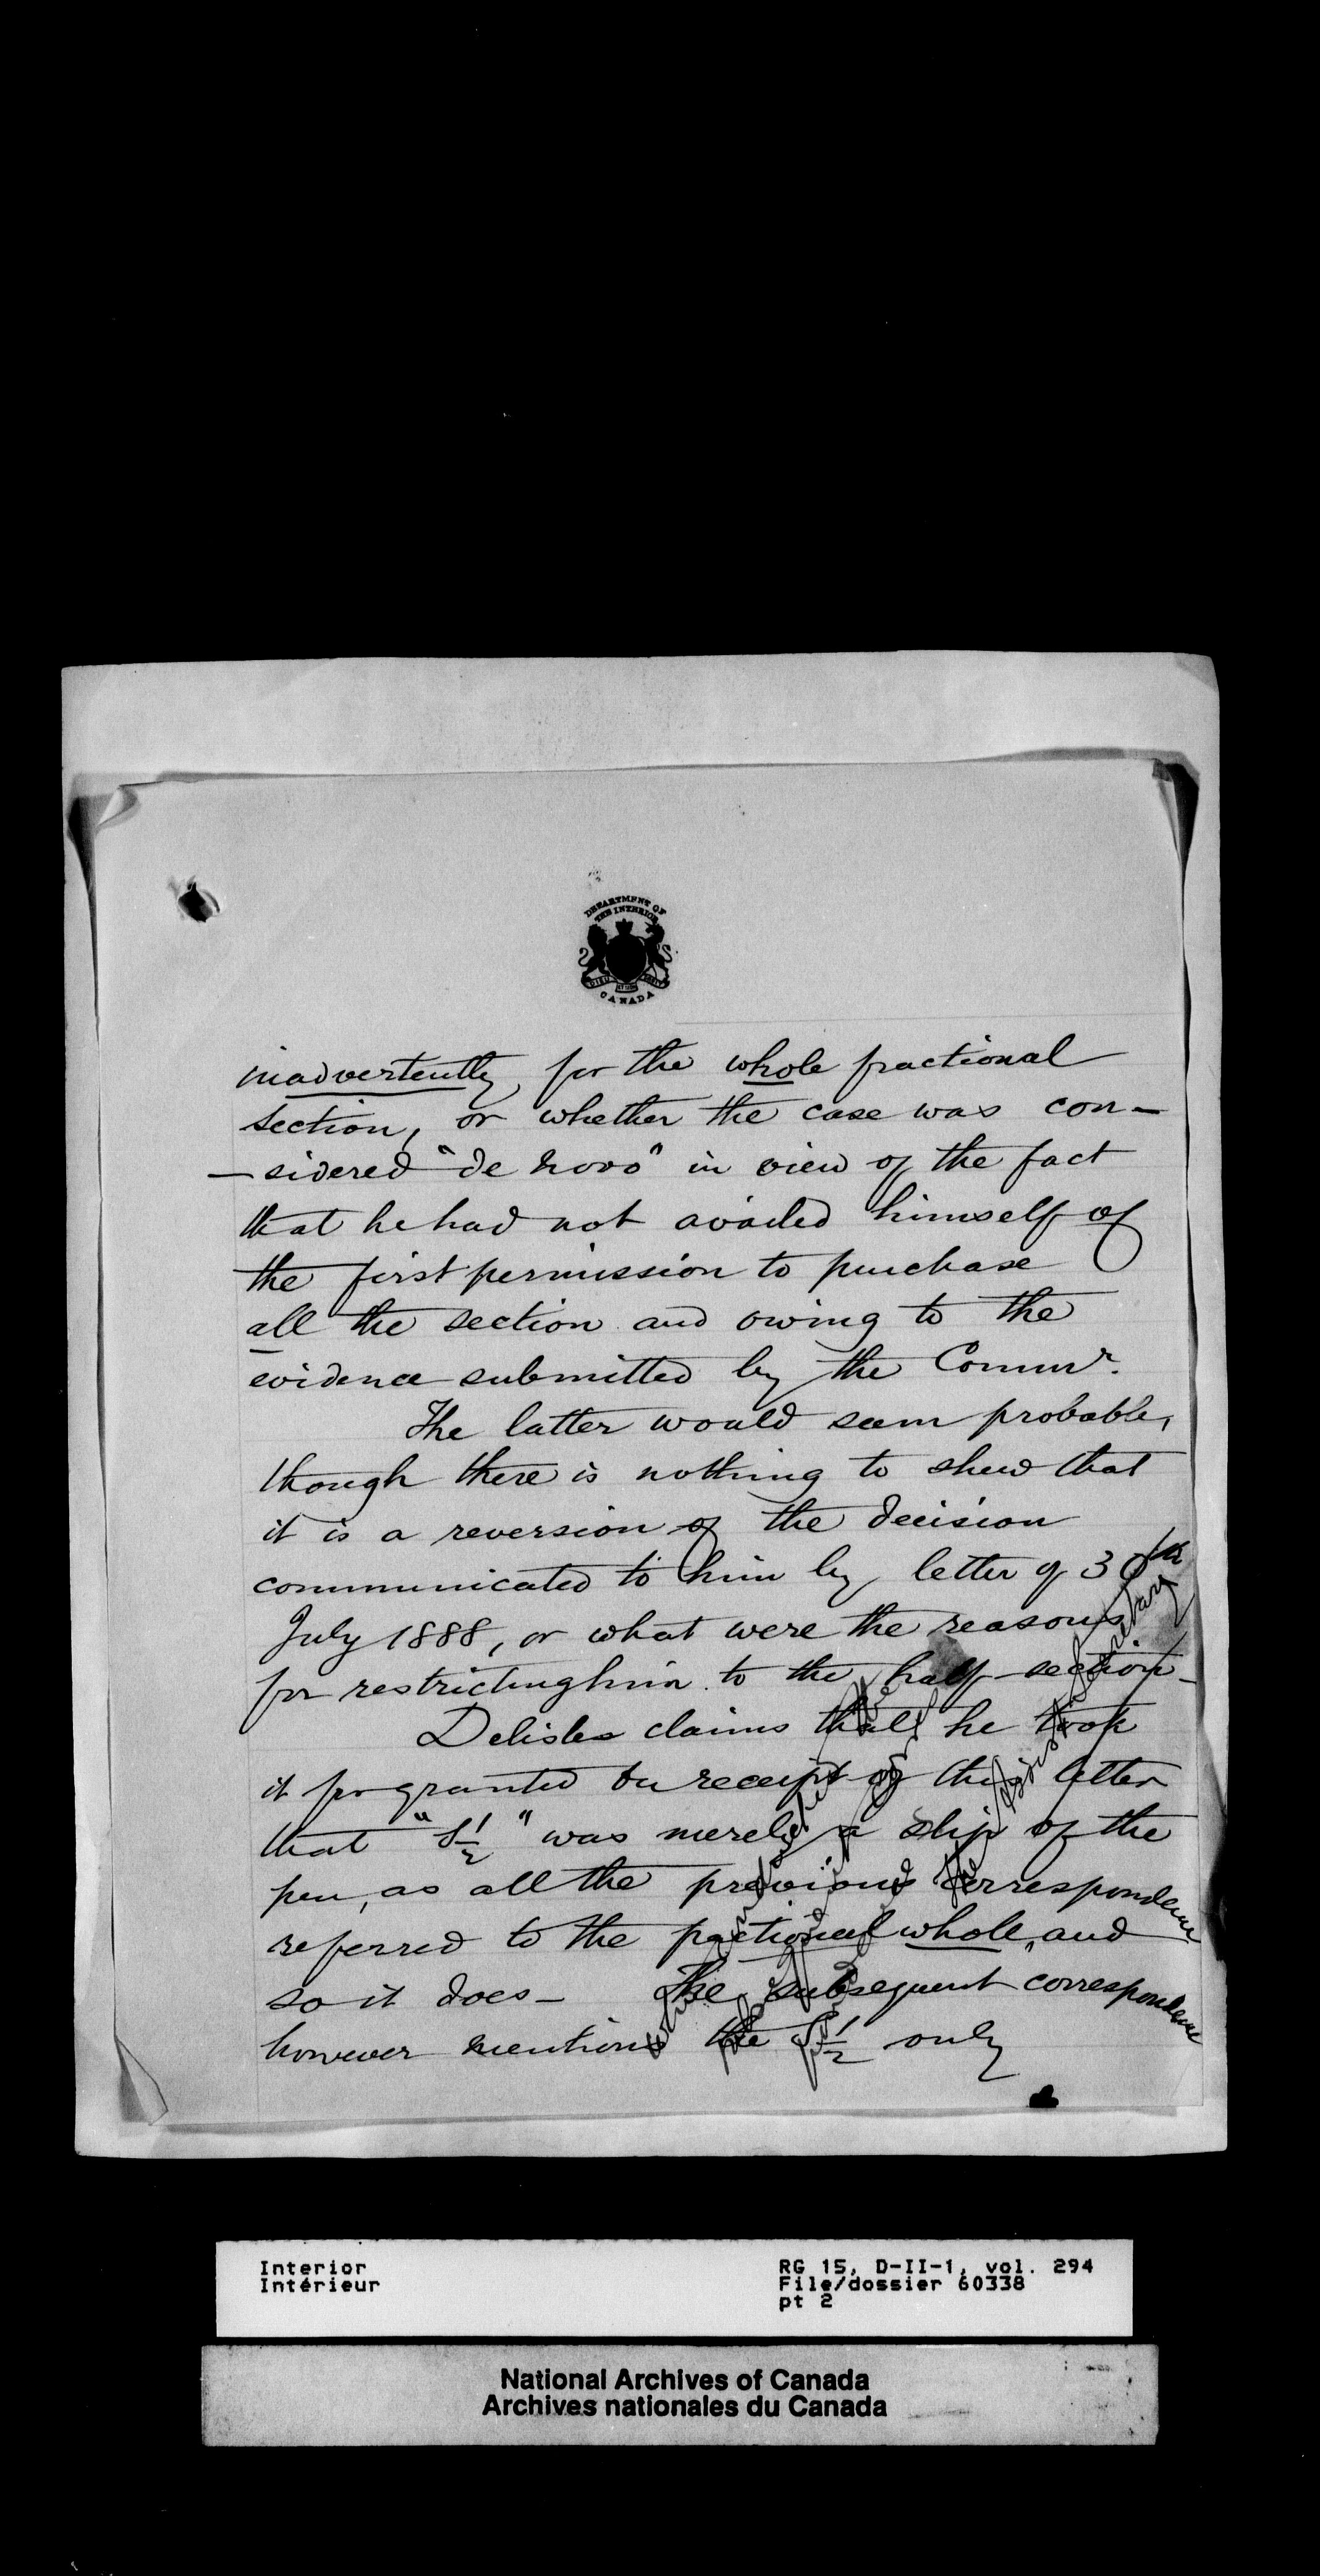 DEPARTMENT OF
THE INTERIOR
CANADA
inadvertently, for the whole fractional
section, or whether the case was con-
-sidered "de novo" in view of the fact
that he had not availed himself of
the first permission to purchase
all the section and owing to the
evidence submitted by the Commr.
The latter would seem probable,
though there is nothing to shew that
it is a reversion of the decision
communicated to him by letter of 30th
July 1888, or what were the reasons
for restricting him to the half-section-
Delisles claims that he took
it for granted on receipt of this letter
that "S½" was merely a slip of the
pen, as all the previous correspondence
referred to the fractional whole, and
so it does- The subsequent correspondence
however mentions the S½ only
Secretary
Interior
Intérieur
RG 15, D-II-1, vol. 294
File/dossier 60338
pt 2
National Archives of Canada
Archives nationales du Canada